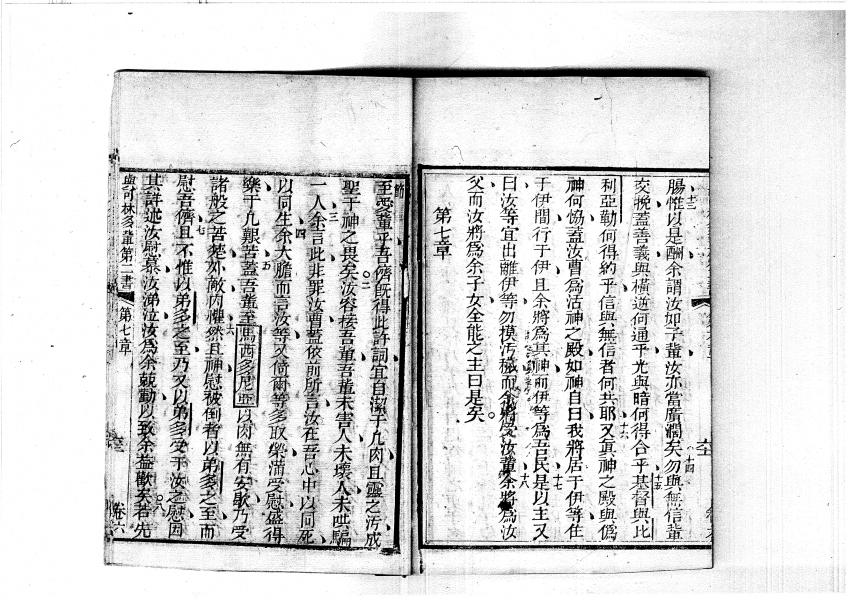 腸惟以是酬余謂汝如子輩汝亦當廣濶矣勿與無信輩
交挽蓋善義與橫逆何通乎光與暗何得合乎基督與比
利亞勒何得約乎信與無信者何共耶又眞神之殿與僞
神何協蓋汝曹爲活神之殿如神自曰我將居于伊等住
于伊間行于伊且余將爲其神而伊等爲吾民是以主又
曰汝等宜出離伊等勿摸汚穢而余將受汝輩余將爲汝
父而汝將爲余子女全能之主曰是矣
第七章
至愛輩乎吾儕旣得此許詞宜自潔于凡肉且靈之汚成
聖于神之畏矣汝容接吾輩吾輩未害人未壞人未哄騙
一人余言此非罪汝曹蓋依前所言汝在吾心中以同死
以同生余大膽而言汝等又倚爾等多取樂滿受慰盛得
樂于凡艱苦蓋吾輩至馬西多尼亞以肉無有安歇乃受
諸般之苦楚外敵內懼然且神慰被倒者以弟多之至而
慰吾儕且不惟以弟多之至乃又以弟多受于汝之慰因
其詳述汝慰慕汝涕泣汝爲余兢勤以致余益歡矣若先
與可林多輩第二書
第七章
卷六